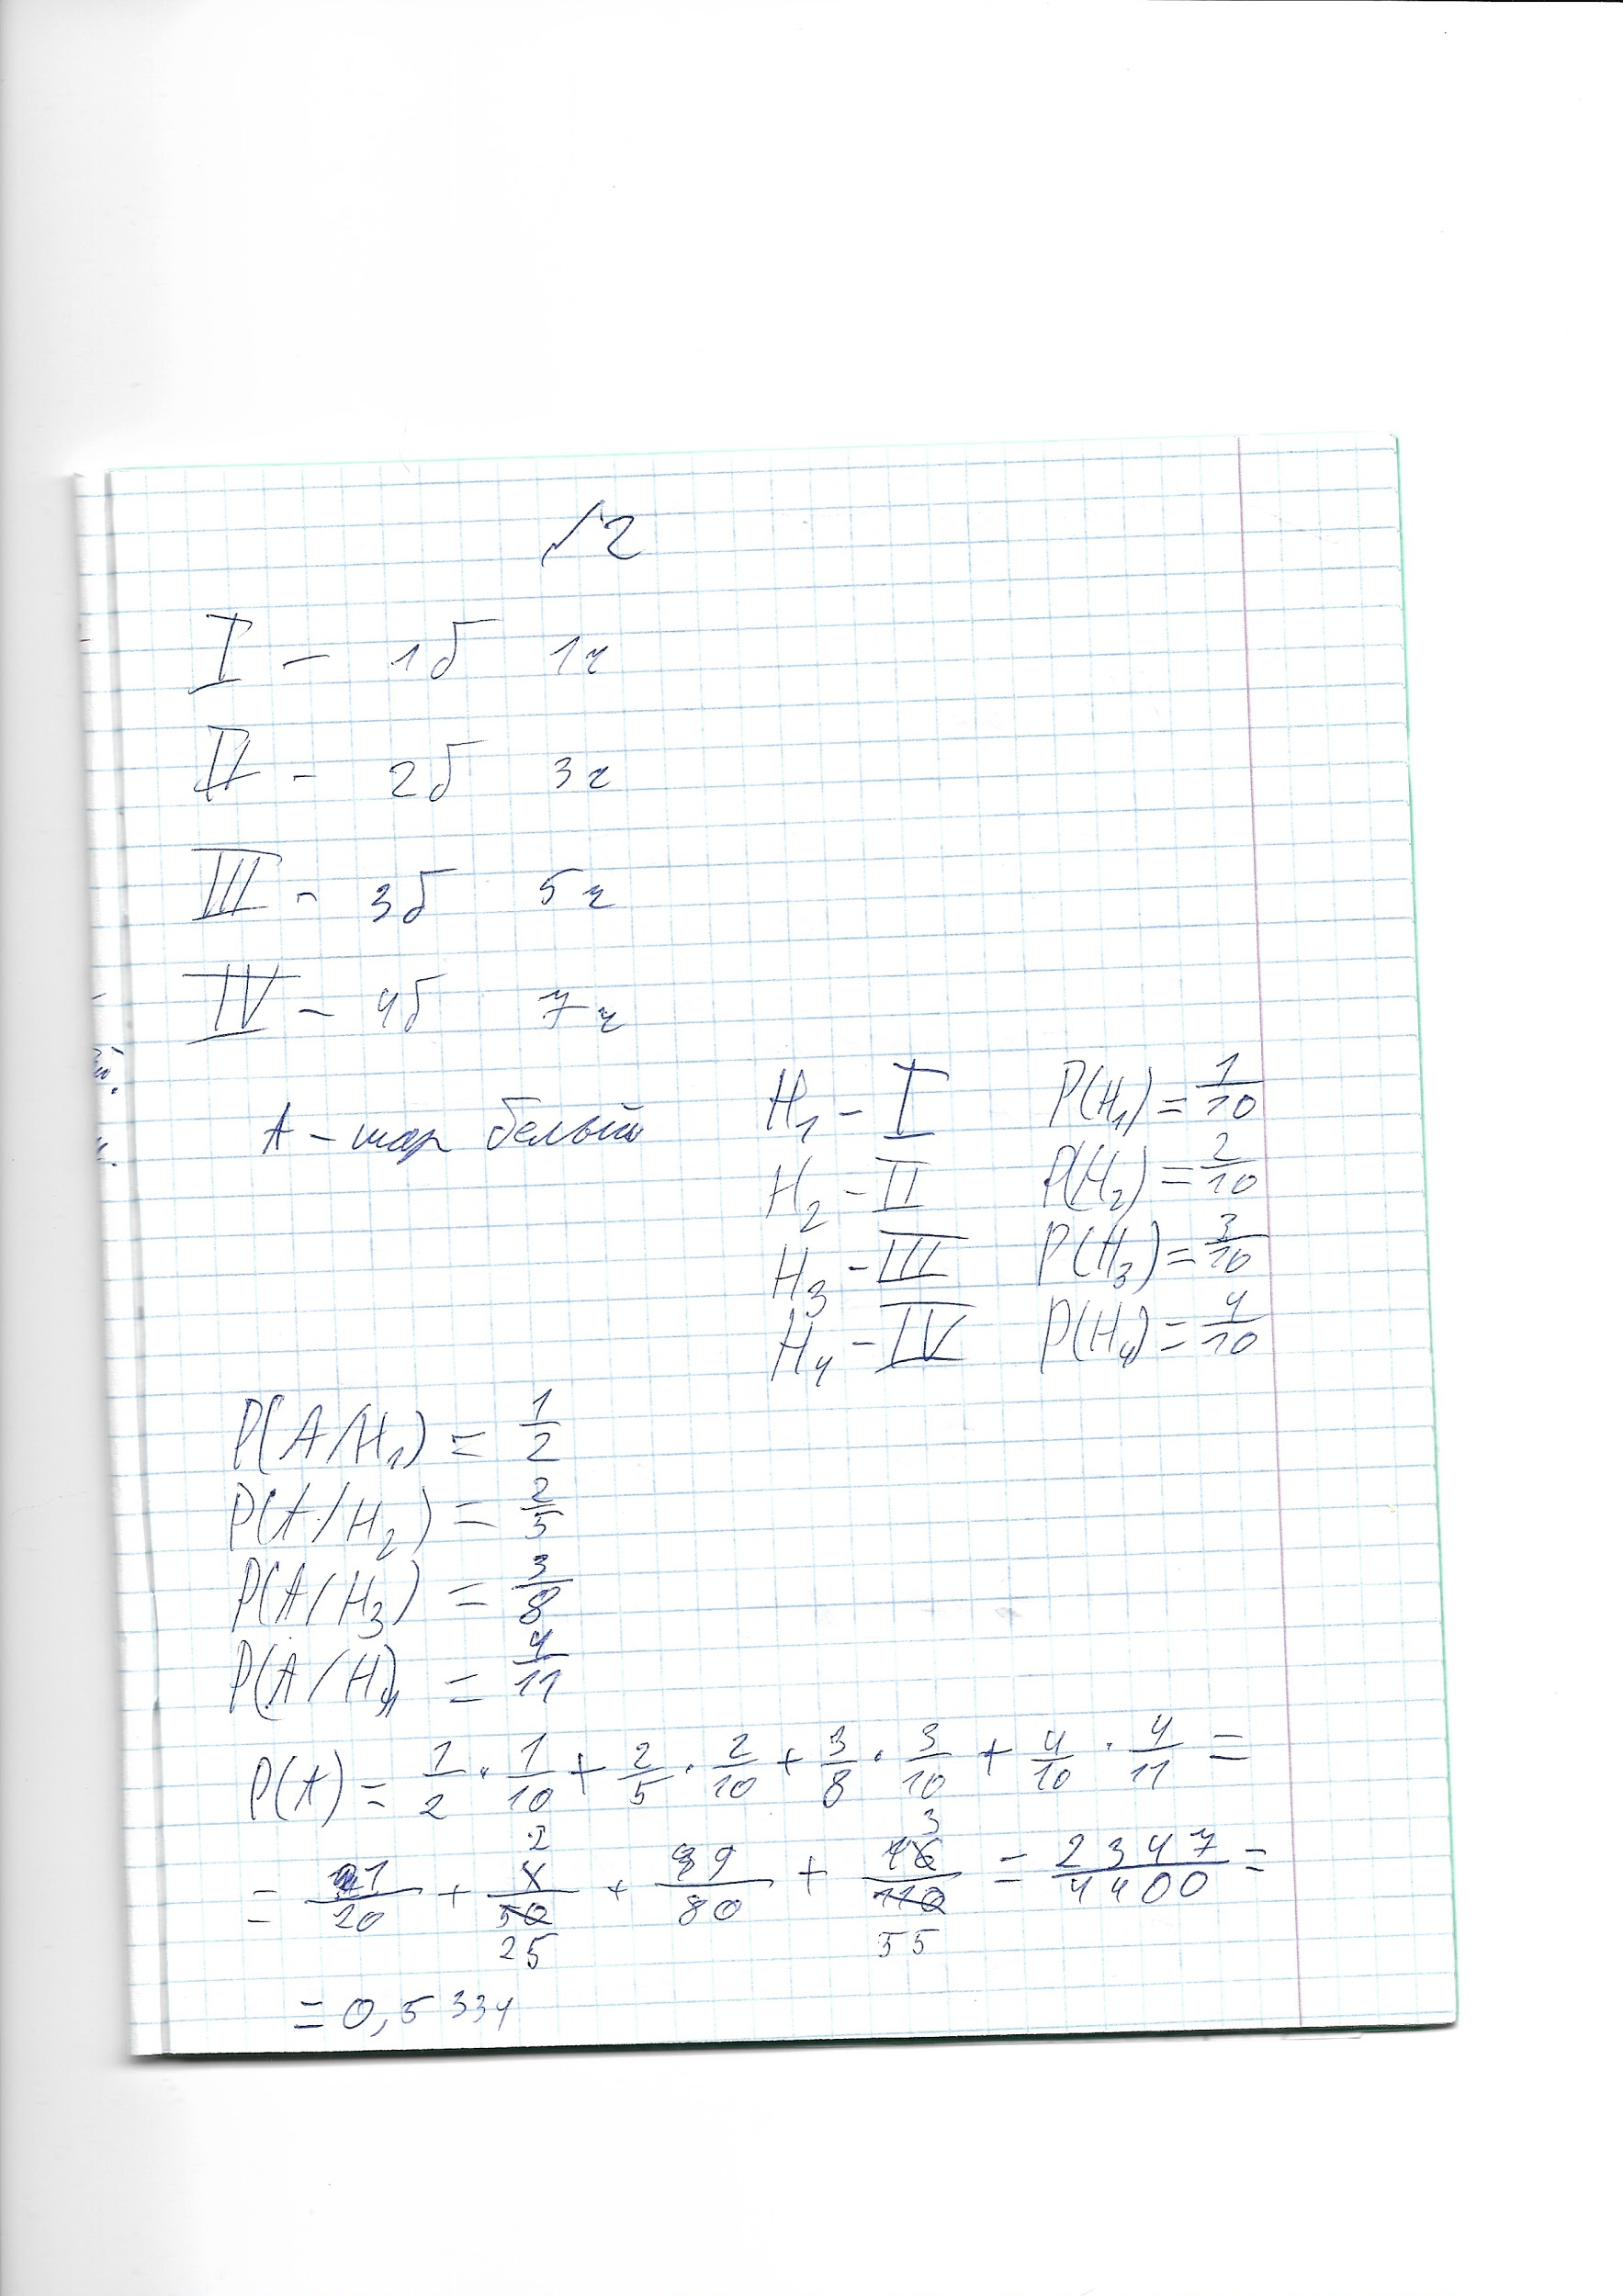 №2
I – 1б 1ч
II – 2б 3ч
III – 3б 5ч
IV – 4б 7ч
A – шар белый
H₁ – I P(H₁) = 1/10
H₂ – II P(H₂) = 2/10
H₃ – III P(H₃) = 3/10
H₄ – IV P(H₄) = 4/10
P(A/H₁) = 1/2
P(A/H₂) = 2/5
P(A/H₃) = 3/8
P(A/H₄) = 4/11
P(A) = 1/2 · 1/10 + 2/5 · 2/10 + 3/8 · 3/10 + 4/10 · 4/11 =
= 1/20 + 2/25 + 9/80 + 3/55 = 2347/4400 =
= 0,5334